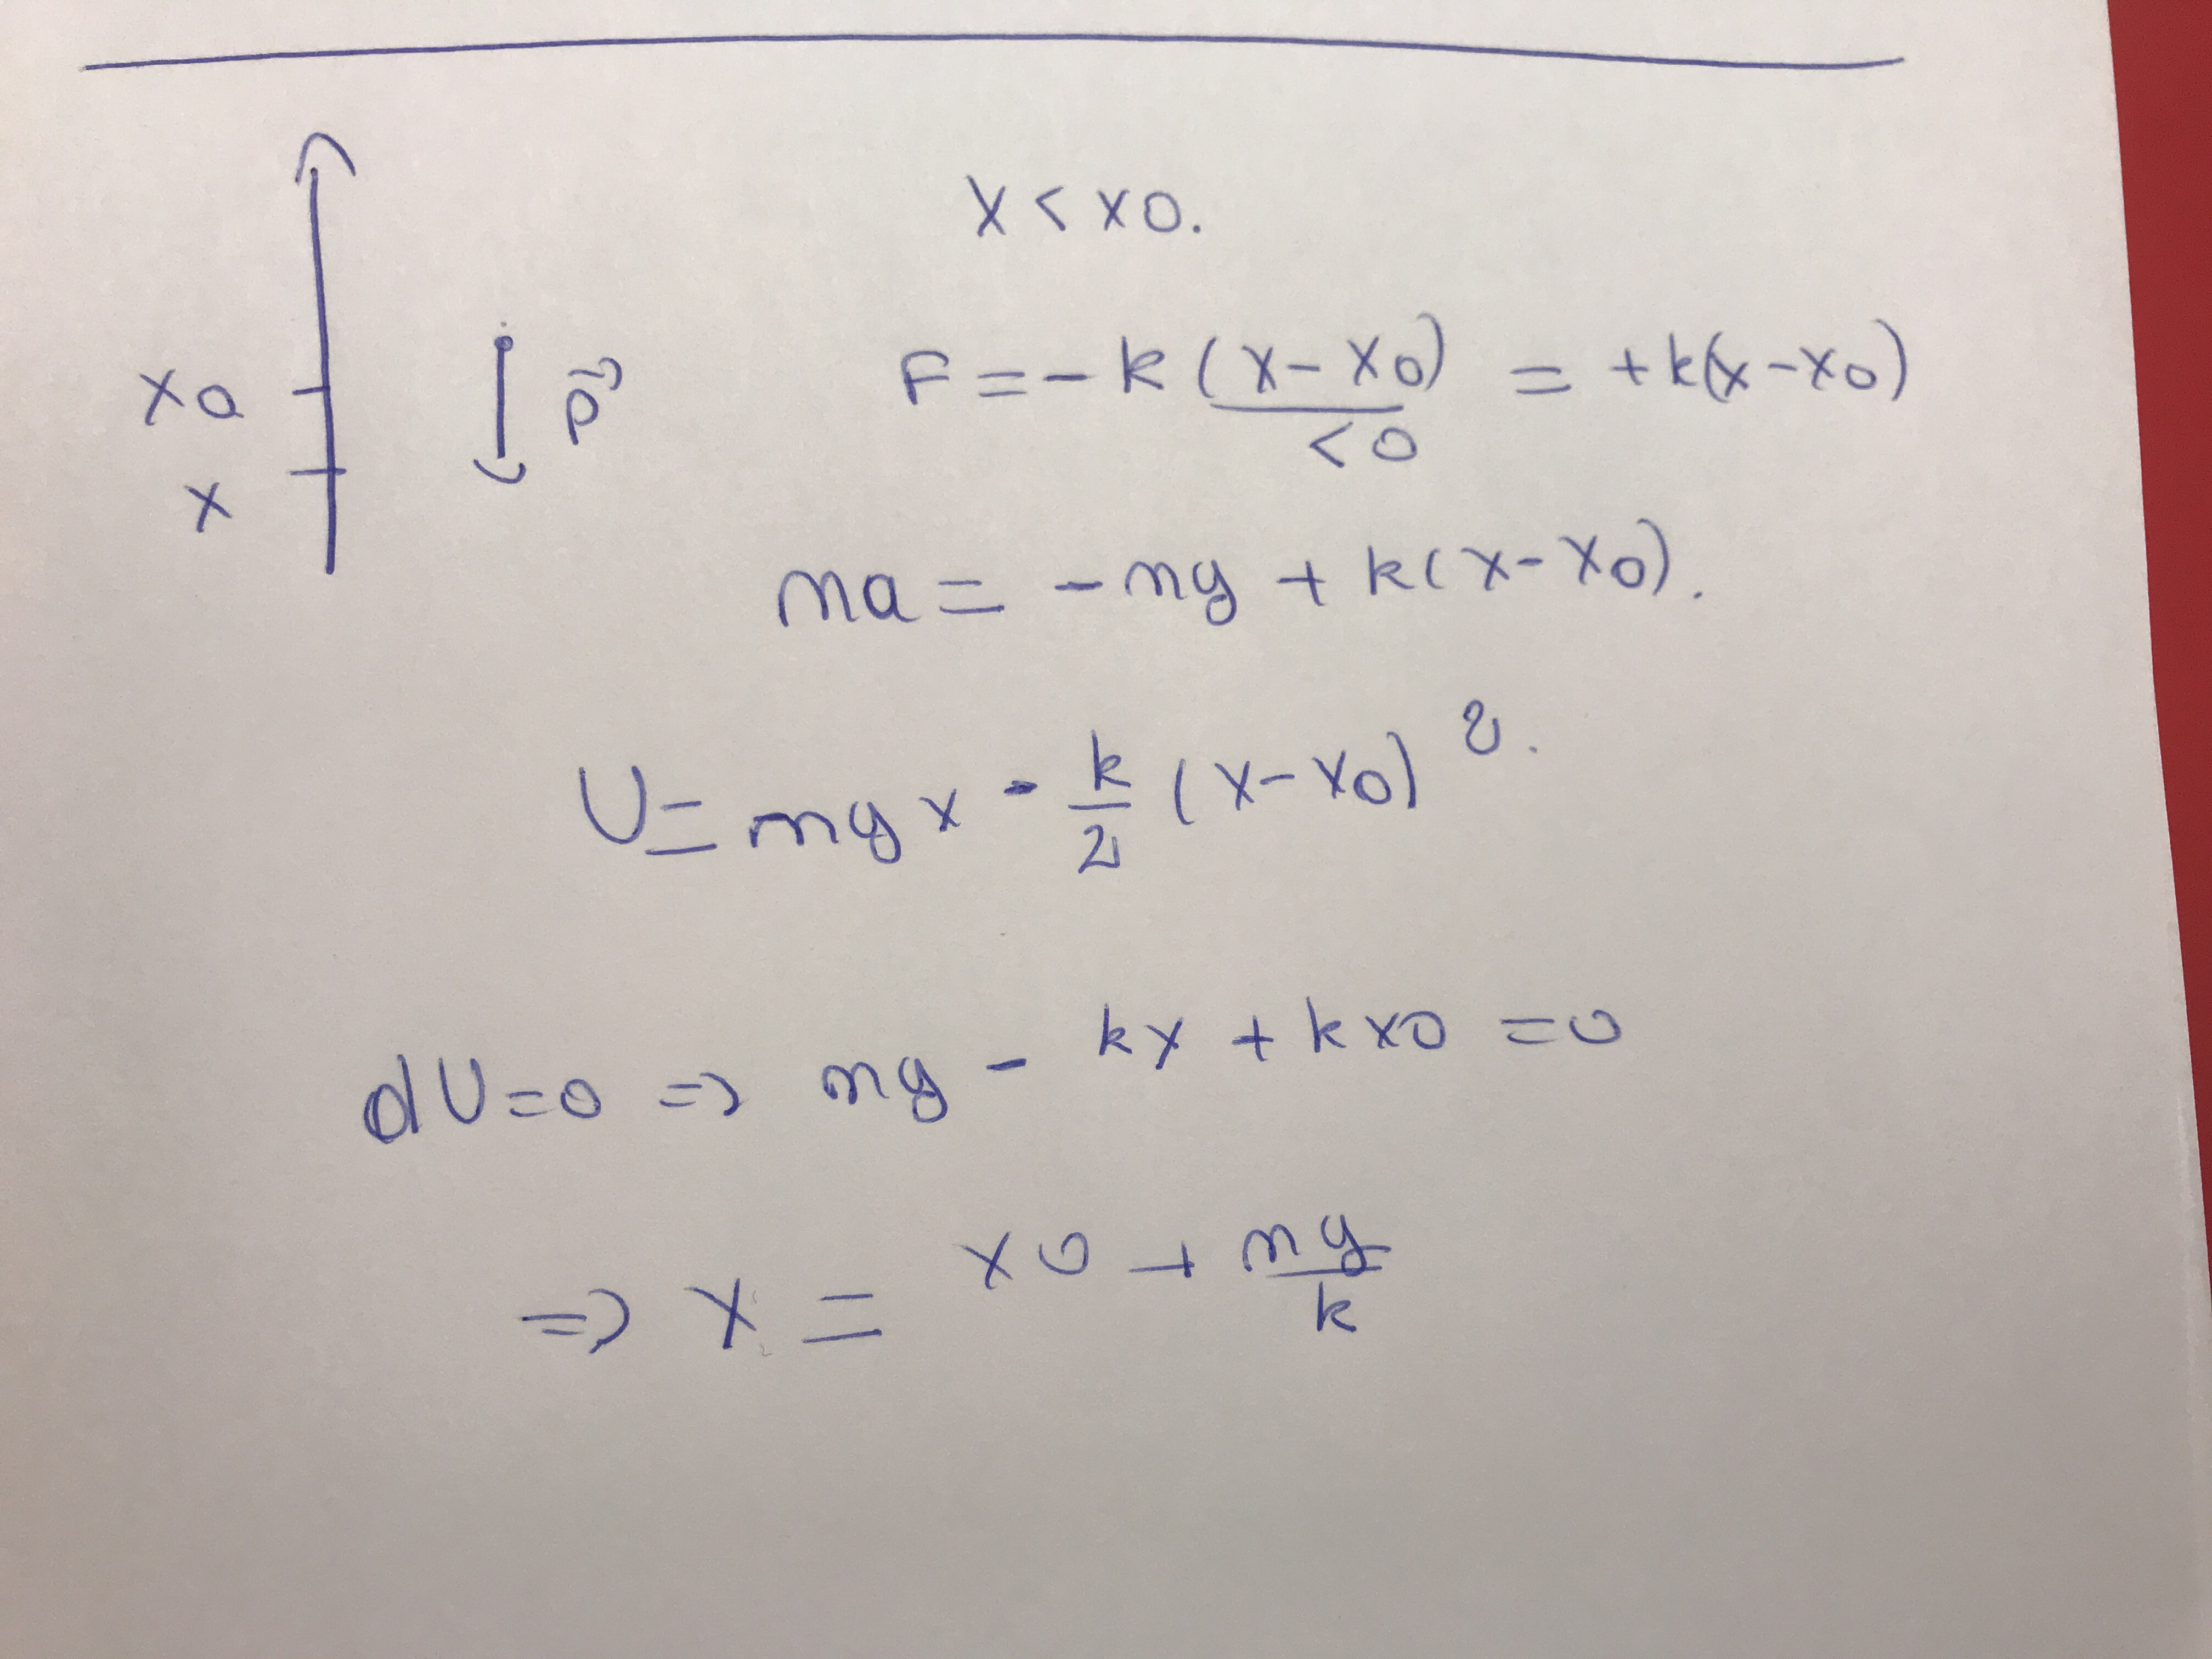 x < x0.
x0
x
p⃗
F = -k(x-x0) = +k(x-x0)
<0
ma = -mg + k(x-x0).
U = mgx - k/2 (x-x0)².
dU=0 => mg - kx + kx0 = 0
=> x = x0 + mg/k